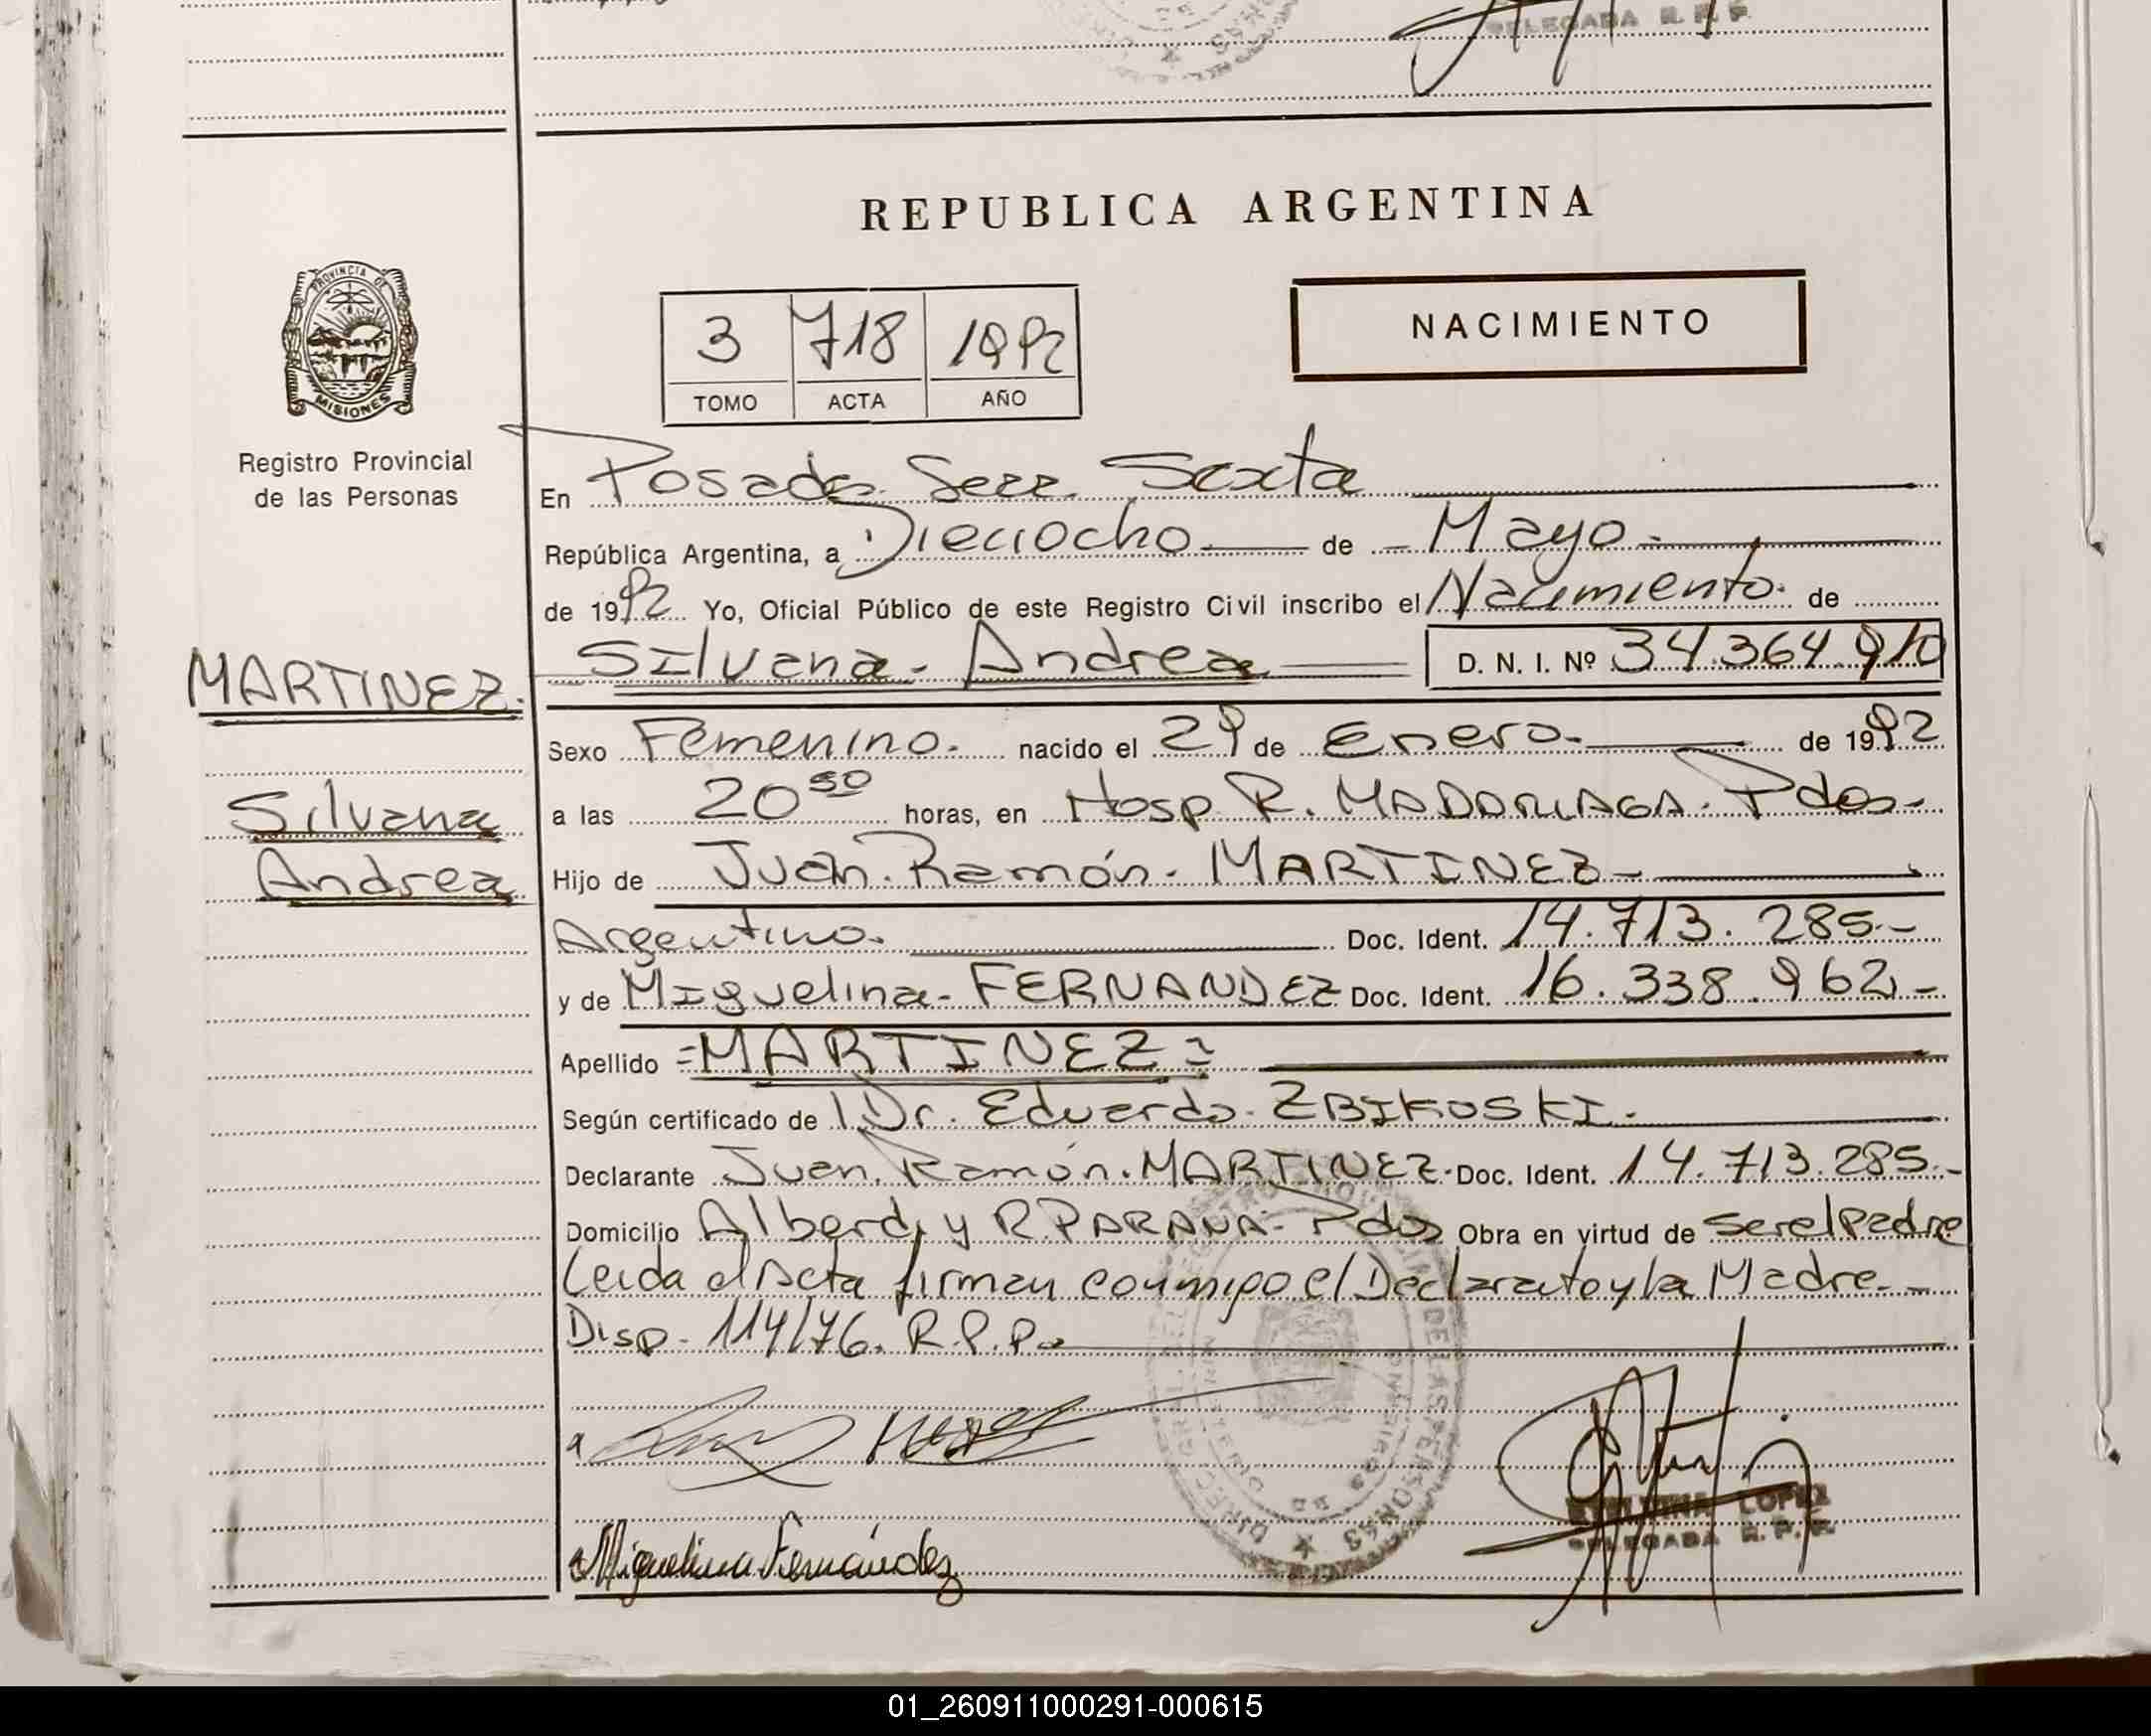 DELEGADA R. P. P.
REPUBLICA ARGENTINA
PROVINCIA DE
MISIONES
Registro Provincial
de las Personas
3 718 1992
TOMO ACTA AÑO
NACIMIENTO
En Posadas Secc. Sexta
República Argentina, a Dieciocho de Mayo.
de 1992 Yo, Oficial Público de este Registro Civil inscribo el Nacimiento. de
Silvana. Andrea D. N. I. Nº 34.364.910
MARTINEZ.
Silvana
Andrea
Sexo Femenino. nacido el 29 de Enero. de 1992
a las 20 50 horas, en Hosp R. MADARIAGA. Pdas.
Hijo de Juan. Ramón. MARTINEZ
Argentino. Doc. Ident. 14.713.285.-
y de Miguelina. FERNANDEZ Doc. Ident. 16.338.962.-
Apellido =MARTINEZ=
Según certificado de Dr. Eduardo. ZBIKOSKI.
Declarante Juan. Ramón. MARTINEZ. Doc. Ident. 14.713.285.-
Domicilio Alberdi y R. PARANA. Pdas Obra en virtud de ser el Padre
Leida el Acta firman conmigo el Declarate y la Madre.-
Disp. 114/76. R.P.P.
Miguelina Fernández
LOPEZ
DELEGADA R. P. P.
01_260911000291-000615